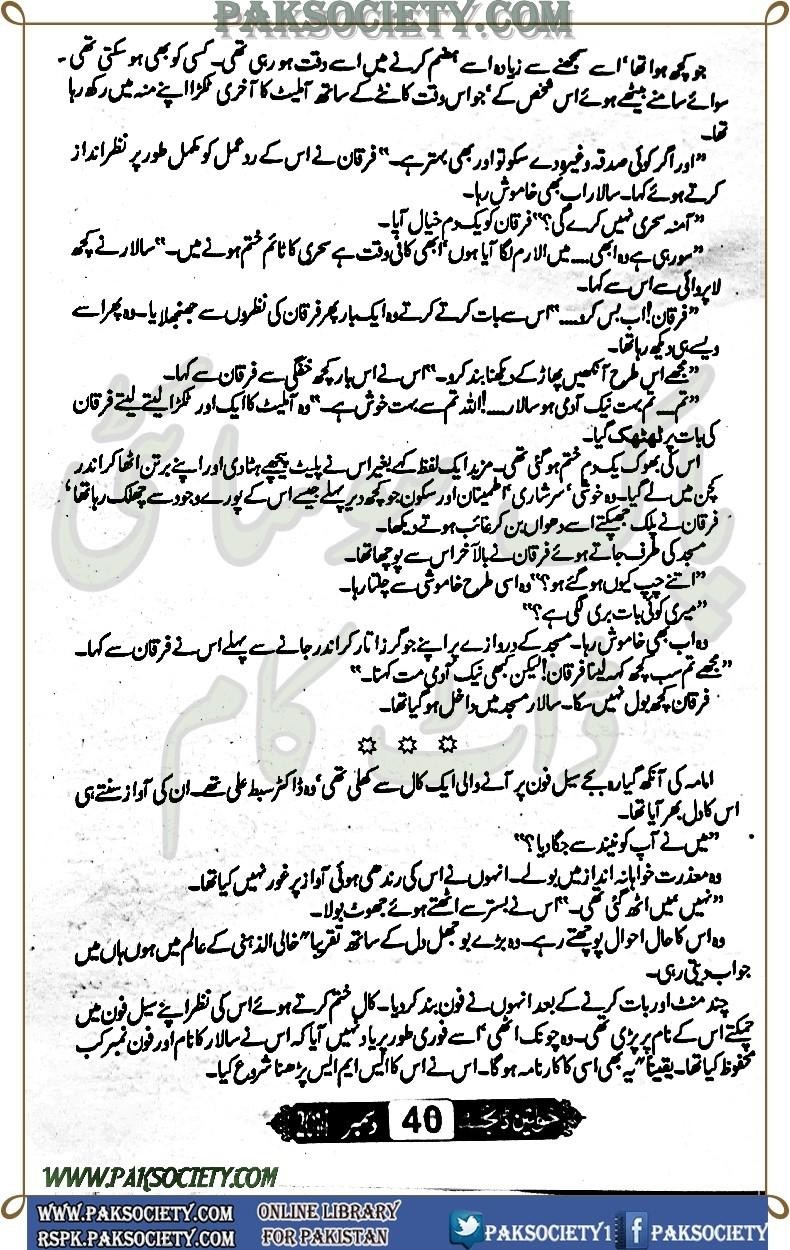 PAKSOCIETY.COM
جو کچھ ہوا تھا‘ اسے سمجھنے سے زیادہ اسے ہضم کرنے میں اسے دقت ہو رہی تھی۔ کسی کو بھی ہو سکتی تھی۔
سوائے سامنے بیٹھے ہوئے اس شخص کے‘ جو اس وقت کانٹے کے ساتھ آملیٹ کا آخری ٹکڑا اپنے منہ میں رکھ رہا
تھا۔
”اور اگر کوئی صدقہ وغیرہ دے سکو تو اور بھی بہتر ہے۔“ فرقان نے اس کے ردعمل کو مکمل طور پر نظر انداز
کرتے ہوئے کہا۔ سالار اب بھی خاموش رہا۔
”آمنہ سحری نہیں کرے گی؟“ فرقان کو یک دم خیال آیا۔
”سو رہی ہے وہ ابھی.... میں الارم لگا آیا ہوں‘ ابھی کافی وقت ہے سحری کا ٹائم ختم ہونے میں۔“ سالار نے کچھ
لاپروائی سے اس سے کہا۔
”فرقان! اب بس کرو....“ اس سے بات کرتے کرتے وہ ایک بار پھر فرقان کی نظروں سے جھنجھلایا۔ وہ پھر اسے
ویسے ہی دیکھ رہا تھا۔
”مجھے اس طرح آنکھیں پھاڑ کے دیکھنا بند کرو۔“ اس نے اس بار کچھ خفگی سے فرقان سے کہا۔
”تم.... تم بہت نیک آدمی ہو سالار....! اللہ تم سے بہت خوش ہے۔“ وہ آملیٹ کا ایک اور ٹکڑا لیتے لیتے فرقان
کی بات پر ٹھٹھک گیا۔
اس کی بھوک یک دم ختم ہو گئی تھی۔ مزید ایک لفظ کہے بغیر اس نے پلیٹ پیچھے ہٹا دی اور اپنے برتن اٹھا کر اندر
کچن میں لے گیا۔ وہ خوشی‘ سرشاری‘ اطمینان اور سکون جو کچھ دیر پہلے جیسے اس کے پورے وجود سے چھلک رہا تھا‘
فرقان نے پلک جھپکتے اسے دھواں بن کر غائب ہوتے دیکھا۔
مسجد کی طرف جاتے ہوئے فرقان نے بالآخر اس سے پوچھا تھا۔
”اتنے چپ کیوں ہو گئے ہو؟“ وہ اسی طرح خاموشی سے چلتا رہا۔
”میری کوئی بات بری لگی ہے؟“
وہ اب بھی خاموش رہا۔ مسجد کے دروازے پر اپنے جوگرز اتار کر اندر جانے سے پہلے اس نے فرقان سے کہا۔
”مجھے تم سب کچھ کہہ لینا فرقان! لیکن کبھی نیک آدمی مت کہنا۔“
فرقان کچھ بول نہیں سکا۔ سالار مسجد میں داخل ہو گیا تھا۔
امامہ کی آنکھ گیارہ بجے سیل فون پر آنے والی ایک کال سے کھلی تھی‘ وہ ڈاکٹر سبط علی تھے۔ ان کی آواز سنتے ہی
اس کا دل بھر آیا تھا۔
”میں نے آپ کو نیند سے جگا دیا؟“
وہ معذرت خواہانہ انداز میں بولے۔ انہوں نے اس کی رندھی ہوئی آواز پر غور نہیں کیا تھا۔
”نہیں‘ میں اٹھ گئی تھی۔“ اس نے بستر سے اٹھتے ہوئے جھوٹ بولا۔
وہ اس کا حال احوال پوچھتے رہے۔ وہ بڑے بوجھل دل کے ساتھ تقریباً خالی الذہنی کے عالم میں ہوں ہاں میں
جواب دیتی رہی۔
چند منٹ اور بات کرنے کے بعد انہوں نے فون بند کر دیا۔ کال ختم کرتے ہوئے اس کی نظر اپنے سیل فون میں
چمکتے اس کے نام پر پڑی تھی۔ وہ چونک اٹھی‘ اسے فوری طور پر یاد نہیں آیا کہ اس نے سالار کا نام اور فون نمبر کب
محفوظ کیا تھا۔ یقیناً یہ بھی اسی کا کارنامہ ہو گا۔ اس نے اس کا ایس ایم ایس پڑھنا شروع کیا۔
خواتین ڈائجسٹ 40 دسمبر
پاک سوسائٹی
ڈاٹ کام
WWW.PAKSOCIETY.COM
WWW.PAKSOCIETY.COM
RSPK.PAKSOCIETY.COM
ONLINE LIBRARY
FOR PAKISTAN
PAKSOCIETY1
PAKSOCIETY